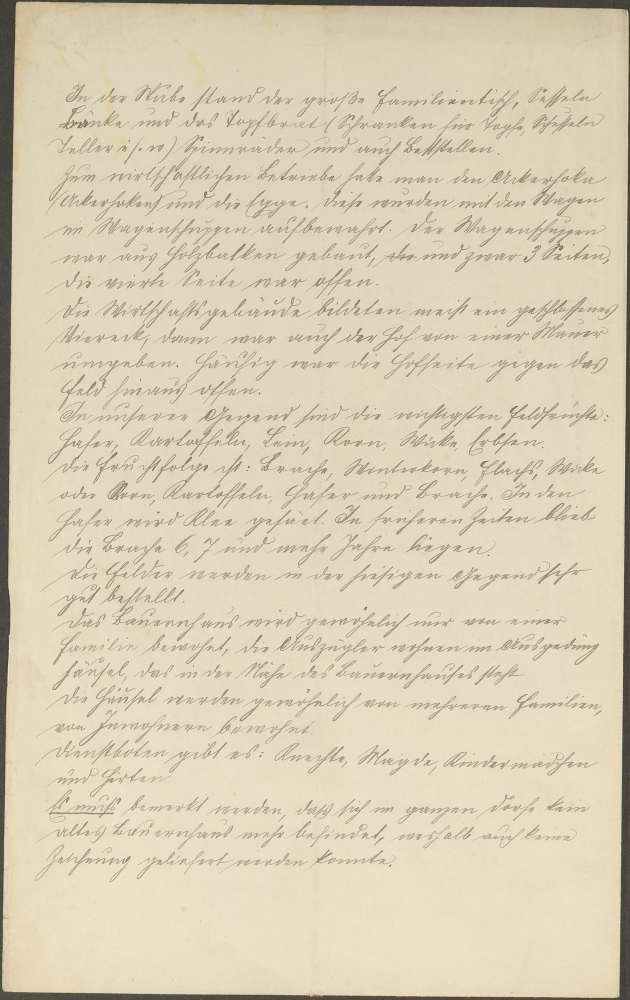 In der Stube stand der große Familientisch, Sesseln
Bänke und das Topfbrat (Schranken für Töpfe, Schüsseln
Teller u. s. w) Spinnräder und auch Bettstellen.
Zum wirtschaftlichen Betriebe hatte man den Ackerhoka
(Ackerhaken) und die Egge. Diese wurden mit den Wagen
im Wagenschuppen aufbewahrt. Der Wagenschuppen
war aus Holzbalken gebaut, und zwar 3 Seiten,
die vierte Seite war offen.
Die Wirtschaftsgebäude bildeten meist ein geschlossenes
Viereck, dann war auch der Hof von einer Mauer
umgeben. Häufig war die Hofseite gegen das
Feld hinaus offen.
In unserer Gegend sind die wichtigsten Feldfrüchte:
Hafer, Kartoffeln, Lein, Korn, Wicke, Erbsen.
Die Fruchtfolge ist: Brache, Winterkorn, Flachs, Wicke
oder Korn, Kartoffeln, Hafer und Brache. In den
Hafer wird Klee gesäet. In früheren Zeiten blieb
die Brache 6, 7 und mehr Jahre liegen.
Die Felder werden in der hiesigen Gegend sehr
gut bestellt.
Das Bauernhaus wird gewöhnlich nur von einer
Familie bewohnt, die Auszügler wohnen im Ausgeding
häusel, das in der Nähe des Bauernhauses steht
Die Häusel werden gewöhnlich von mehreren Familien,
von Inwohnern bewohnt.
Dienstboten gibt es: Knechte, Mägde, Kindermädchen
und Hirten.
Es muss bemerkt werden, dass sich im ganzen Dorfe kein
altes Bauernhaus mehr befindet, weshalb auch keine
Zeichnung geliefert werden konnte.